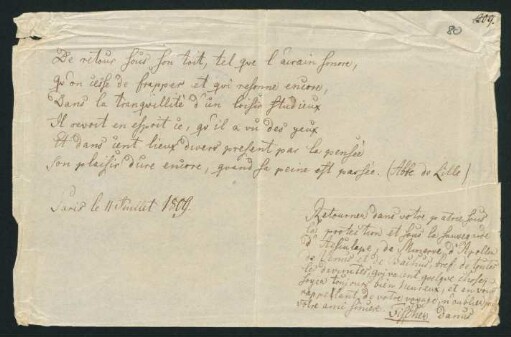 209.
80
De retour sous son toit, tel que l'airain sonore,
qu'on cesse de frapper et qui resonne encore,
Dans la tranquillité d'un loisir studieux
Il revoit en esprit ce, qu'il a vu des yeux
Et dans cent lieux divers present par la pensée
Son plaisir dure encore, quand sa peine est passée. (Abbe de Lille)
Paris le 11 Juillet 1809.
Retournez dans votre patrie sous
la protection et sous la sauvegarde
d'Esculape, de Minerve, d'Apollon
de Venus et de Bachus, bref de toutes
les divinités, qui valent quelque chose,
soyez toujours bien heureux, et en vous
rappellant de votre voyage, n'oubliez pas
votre ami sincere Danus